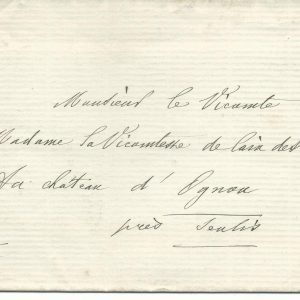 Monsieur le Vicomte
Madame la Vicomtesse de Caix de
Au château d'Ognon
près Senlis